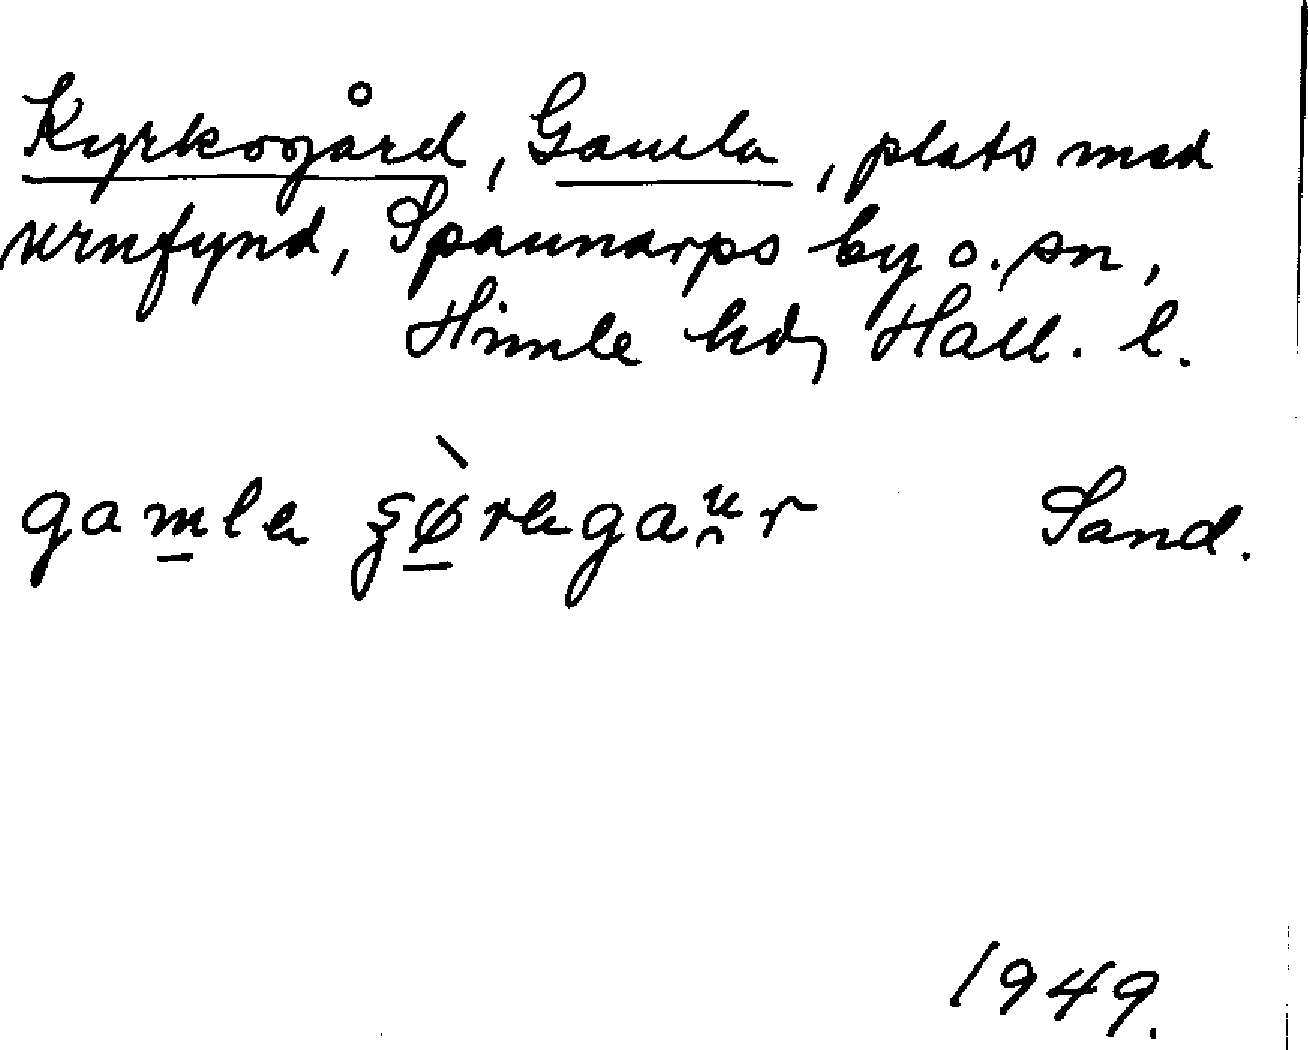 Kyrkogård, Gamla, plats med
urnfynd, Spannarps by o. sn,
Himle hd, Hall. l.
Sand.
1949.